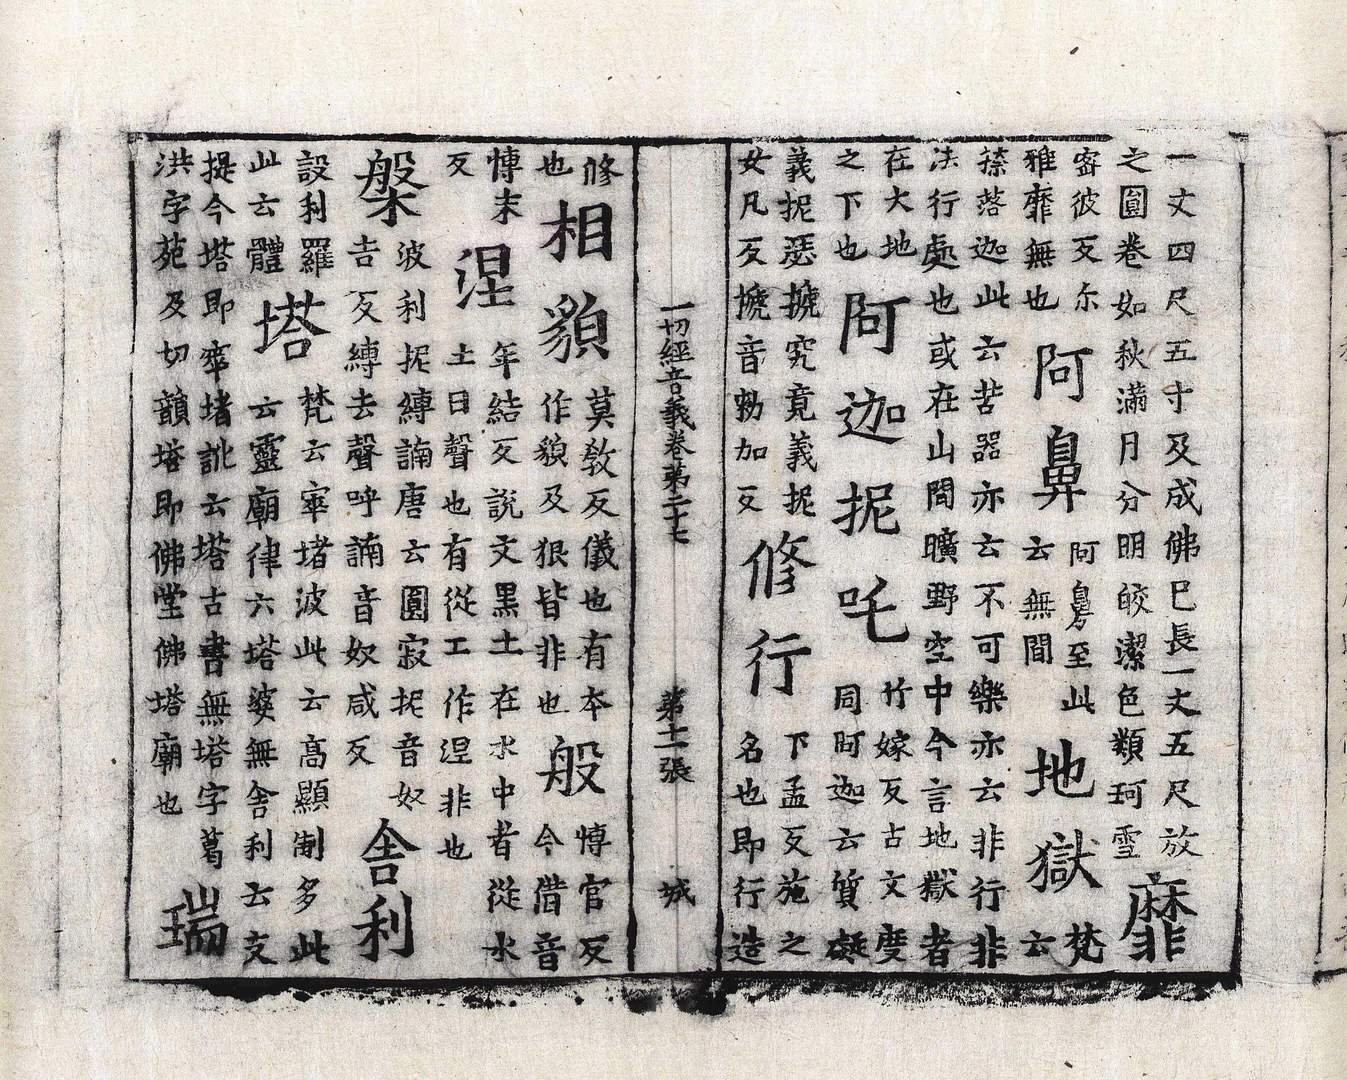 一丈四尺五寸及成佛已長一丈五尺放
之圓卷如秋滿月分明皎潔色類珂雪
靡
密彼反尒
雅靡無也
阿鼻
阿鼻至此
云無間
地獄
梵
云
捺落迦此云苦器亦云不可樂亦云非行非
法行處也或在山間曠野空中今言地獄者
在大地
之下也
阿迦抳吒
竹嫁反古文度
同阿迦云質礙
義抳瑟搋究竟義抳
女凡反搋音勑加反
修行
下孟反施之
名也即行造
一切經音義卷第二十七 第十一張 城
修
也
相貌
莫教反儀也有本
作貌及狠皆非也
般
慱官反
今借音
慱末
反
涅
年結反說文黑土在水中者從水
土日聲也有從工作涅非也
槃
波利抳縛諵唐云圓寂抳音奴
吉反縛去聲呼諵音奴咸反
舍利
設利羅
此云體
塔
梵云窣堵波此云高顯制多此
云靈廟律六塔婆無舍利云支
提今塔即窣堵訛云塔古書無塔字葛
洪字苑及切韻塔即佛堂佛塔廟也
瑞